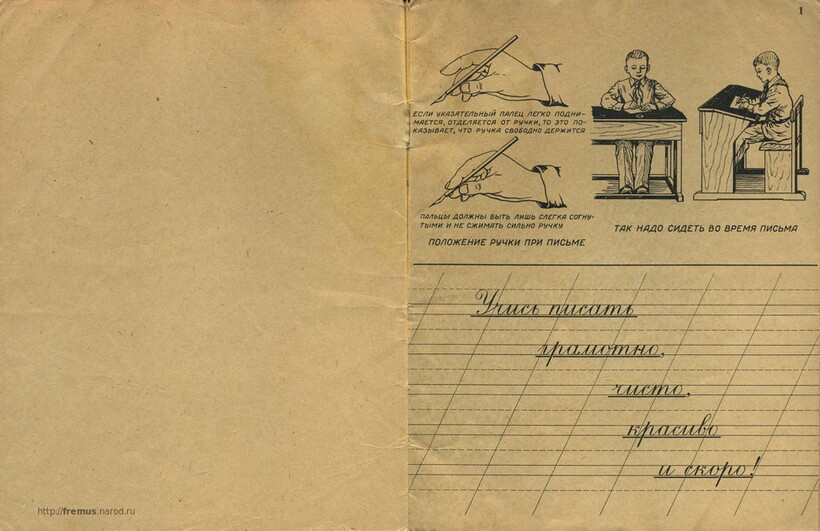 1
ЕСЛИ УКАЗАТЕЛЬНЫЙ ПАЛЕЦ ЛЕГКО ПОДНИ-
МАЕТСЯ, ОТДЕЛЯЕТСЯ ОТ РУЧКИ, ТО ЭТО ПО-
КАЗЫВАЕТ, ЧТО РУЧКА СВОБОДНО ДЕРЖИТСЯ
ПАЛЬЦЫ ДОЛЖНЫ БЫТЬ ЛИШЬ СЛЕГКА СОГНУ-
ТЫМИ И НЕ СЖИМАТЬ СИЛЬНО РУЧКУ
ПОЛОЖЕНИЕ РУЧКИ ПРИ ПИСЬМЕ
ТАК НАДО СИДЕТЬ ВО ВРЕМЯ ПИСЬМА
Учись писать
грамотно,
чисто,
красиво
и скоро!
http://fremus.narod.ru